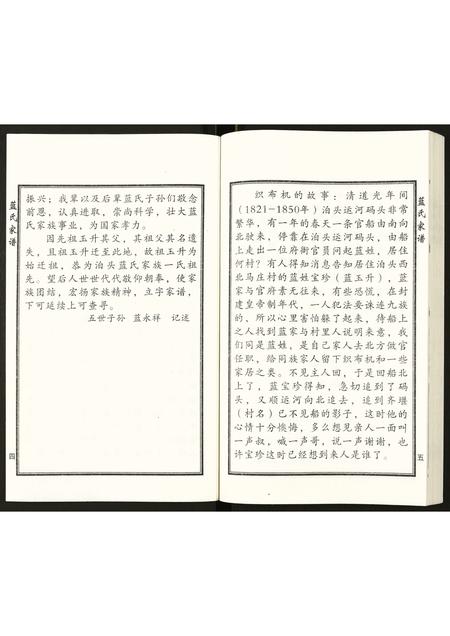 蓝氏家谱
振兴；我辈以及后辈蓝氏子孙们敬念
前恩，认真进取，崇尚科学，壮大蓝
氏家族事业，为国家孝力。
因先祖玉升其父，其祖父其名遗
失，且祖玉升迁至此地，故奉玉升为
始迁祖，恭为泊头蓝氏家族一氏祖
先。望后人世世代代敬仰朝奉，使家
族团结，宏扬家族精神，立字家谱，
下可延续上可查寻。
五世子孙 蓝永祥 记述
四
蓝氏家谱
织布机的故事：清道光年间
（1821-1850年）泊头运河码头非常
繁华，有一年的春天一条官船由南向
北驶来，停靠在泊头运河码头，由船
上走出一位府衙官员问起蓝姓，居住
何村？有人得知消息告知居住泊头西
北马庄村的蓝姓宝珍（蓝玉升），蓝
家与官府素无往来，有些恐慌，在封
建皇帝制年代，一人犯法要诛连九族
的，所以心里害怕躲了起来，待船上
之人找到蓝家与村里人说明来意，我
们同是蓝姓，是自己家人去北方做官
任职，给同族家人留下织布机和一些
家居之类。不见主人回，于是回船北
上了，蓝宝珍得知，急切追到了码
头，又顺运河向北追去，追到齐堰
（村名）已不见船的影子，这时他的
心情十分懊悔，多么想见亲人一面叫
一声叔，喊一声哥，说一声谢谢，也
许宝珍这时已经想到来人是谁了。
五